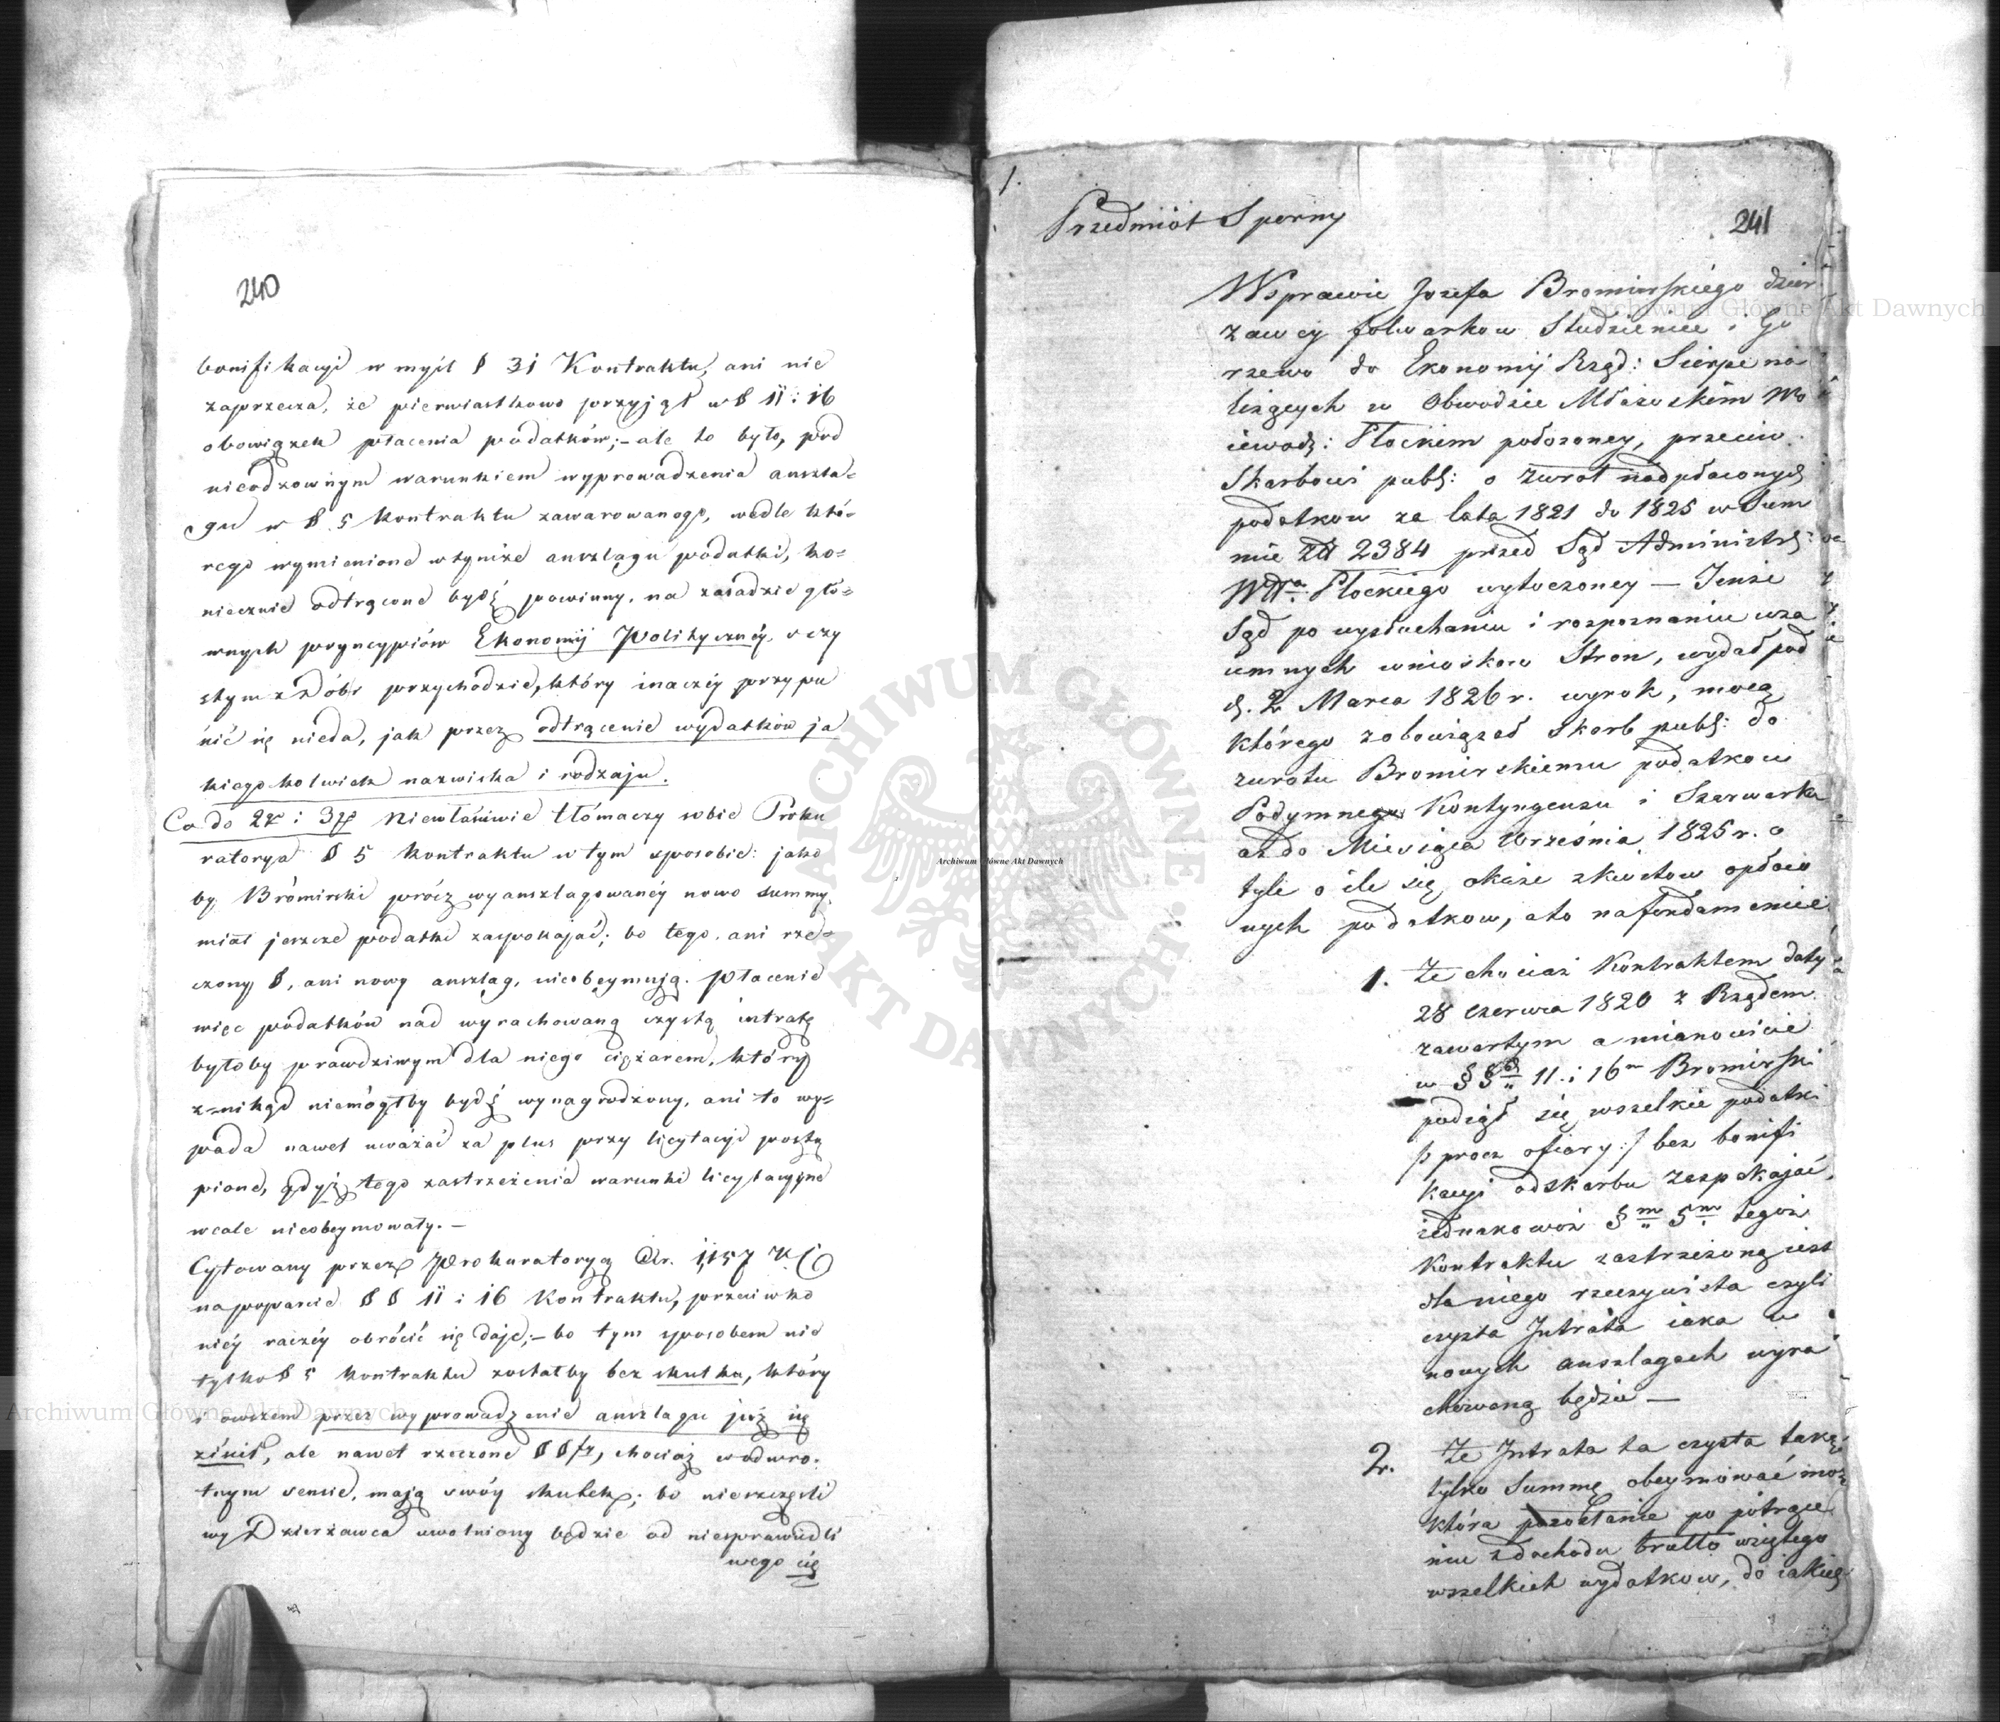 240
bonifikacyi w myśl § 31 Kontraktu, ani nie
zaprzecza, że pierwiastkowo przyjął w § 11 i 16
obowiązek płacenia podatków;– ale to było, pod
nieodzownym warunkiem wyprowadzenia anszla-
gu w § 5 Kontraktu zawarowanego, wedle któ-
rego wymienione w tymże anszlagu podatki, ko-
niecznie odtrącone bydź powinny, na zasadzie głó-
wnych pryncypiów Ekonomij Politycznéy, o czy
stym z Dóbr przychodzie, który inaczéy przypu
ścić się nieda, jak przez odtrącenie wydatków ja
kiegokolwiek nazwiska i rodzaju.
Co do 2r i 3g Niewłaściwie tłómaczy sobie Proku
ratorya § 5 Kontraktu w tym sposobie: jako
by Bromirski prócz wyanszlagowanéy nowo summy,
miał jeszcze podatki zaspokajać; bo tego, ani rze-
czony §, ani nowy anszlag, nieobeymują. Płacenie
więc podatków nad wyrachowaną czystą intratę
byłoby prawdziwym dla niego ciężarem, który
znikąd niemógłby bydź wynagrodzony, ani to wy-
pada nawet uważać za plus przy licytacyi postą
pione, gdyż tego zastrzeżenia warunki licytacyjne
wcale nieobeymowały. –
Cytowany przez Prokuratoryą Ar. 1,157 K. C.
na poparcie §§ 11 i 16 Kontraktu, przeciwko
niéy raczéy obrócić się daje;– bo tym sposobem nie
tylko § 5 Kontraktu zostałby bez skutku, który
owszem przez wyprowadzenie anszlagu już się
ziścił, ale nawet rzeczone §§fy, chociaż w odwro-
tnym sensie, mają swóy skutek; bo nieszczęśli
wy Dzierżawca uwolniony będzie od niesprawiedli
wego cię
1.
241
Przedmiot Sporny
W sprawie Jozefa Bromirskiego dzier
zawcy folwarkow Studzieniec i Go
rzewo do Ekonomij Rząd: Sierpc na
leżących w Obwodzie Mławskim Wo
iewodz: Płockim położoney, przeciw
Skarbowi publ: o zwrot nadpłaconych
podatkow za lata 1821 do 1825 w Sum
mie Zł 2384 przed Sąd Administr:
Wdztwa Płockiego wytoczoney – Tenże
Sąd po wysłuchaniu i rozpoznaniu wza
iemnych wnioskow Stron, wydał pod
d. 2 Marca 1826 r. wyrok, mocą
którego zobowiązał Skarb publ: do
zwrotu Bromirskiemu podatkow
Podymnego Kontyngensu i Szarwarku
aż do Miesiąca Września 1825 r. o
tyle o ile się okaże z kwitow opłaco
nych podatkow, a to na fundamencie
1. Że chociaż Kontraktem daty
28 Czerwca 1820 z Rządem
zawartym a mianowicie
w § 11 i 16m Bromirski
podiął się wszelkie podatki
/: procz ofiary :/ bez bonifi
kacyi od skarbu zaspokajać,
iednakowoż §m 5m tegoż
Kontraktu zastrzeżoną iest
dla niego rzeczywista czyli
czysta Intrata iaka w
nowych anszlagach wyra
chowaną będzie –
2. Że Intrata ta czysta taką
tylko Summę obeymować może
która pozostanie po potrące
niu z dochodu brutto wziętego
wszelkich wydatkow, do iakich
Archiwum Główne Akt Dawnych
Archiwum Główne Akt Dawnych
Archiwum Główne Akt Dawnych
ARCHIWUM GŁÓWNE AKT DAWNYCH